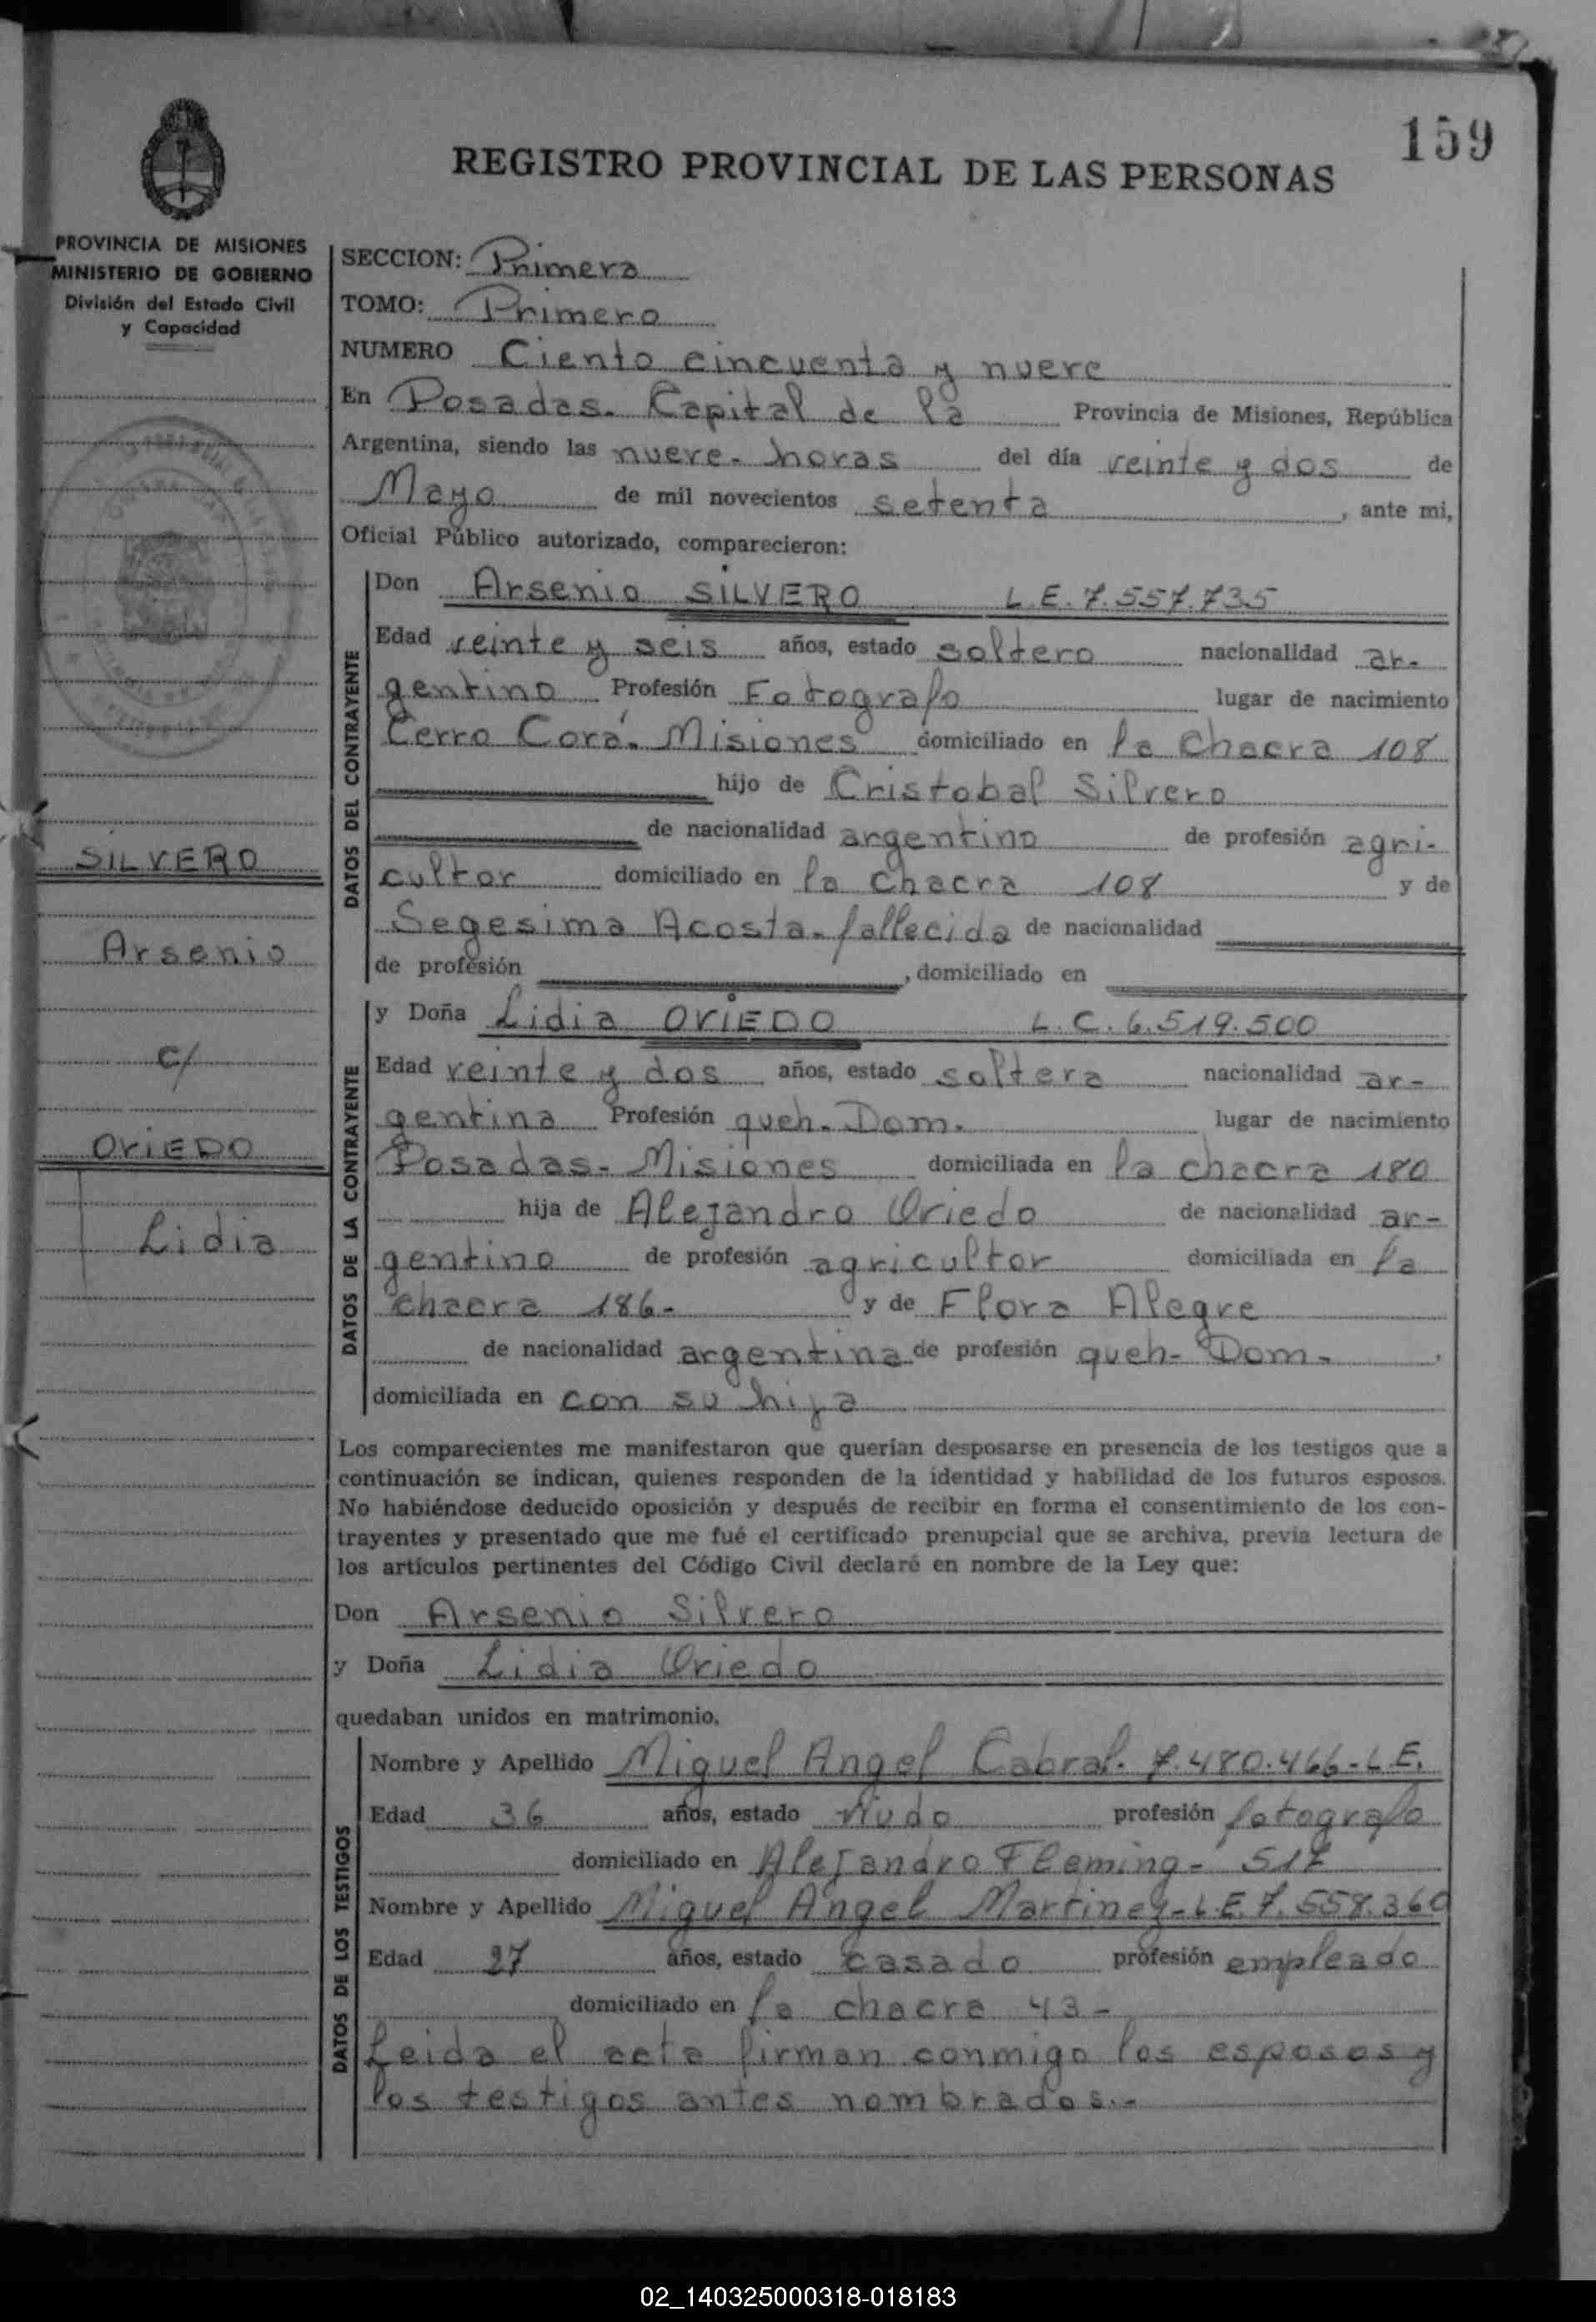 159
REGISTRO PROVINCIAL DE LAS PERSONAS
PROVINCIA DE MISIONES
MINISTERIO DE GOBIERNO
División del Estado Civil
y Capacidad
SILVERO
Arsenio
c/
OVIEDO
Lidia
SECCION: Primera
TOMO: Primero
NUMERO Ciento cincuenta y nueve
En Posadas. Capital de la Provincia de Misiones, República
Argentina, siendo las nueve. horas del día veinte y dos de
Mayo de mil novecientos setenta, ante mi,
Oficial Público autorizado, comparecieron:
DATOS DEL CONTRAYENTE
Don Arsenio SILVERO L.E. 7.557.735
Edad veinte y seis años, estado soltero nacionalidad ar-
gentino Profesión Fotografo lugar de nacimiento
Cerro Corá. Misiones domiciliado en la Chacra 108
hijo de Cristobal Silvero
de nacionalidad argentino de profesión agri-
cultor domiciliado en la chacra 108 y de
Segesima Acosta. fallecida de nacionalidad
de profesión, domiciliado en
DATOS DE LA CONTRAYENTE
y Doña Lidia OVIEDO L.C. 6.519.500
Edad veinte y dos años, estado soltera nacionalidad ar-
gentina Profesión queh. Dom. lugar de nacimiento
Posadas- Misiones domiciliada en la chacra 180
hija de Alejandro Oviedo de nacionalidad ar-
gentino de profesión agricultor domiciliada en la
chacra 186- y de Flora Alegre
de nacionalidad argentina de profesión queh- Dom-,
domiciliada en con su hija
Los comparecientes me manifestaron que querían desposarse en presencia de los testigos que a
continuación se indican, quienes responden de la identidad y habilidad de los futuros esposos.
No habiéndose deducido oposición y después de recibir en forma el consentimiento de los con-
trayentes y presentado que me fué el certificado prenupcial que se archiva, previa lectura de
los artículos pertinentes del Código Civil declaré en nombre de la Ley que:
Don Arsenio Silvero
y Doña Lidia Oviedo
quedaban unidos en matrimonio.
DATOS DE LOS TESTIGOS
Nombre y Apellido Miguel Angel Cabral. 7.480.466-L.E.
Edad 36 años, estado viudo profesión fotografo
domiciliado en Alejandro Fleming- 517
Nombre y Apellido Miguel Angel Martinez-L.E.7.558.360
Edad 27 años, estado casado profesión empleado
domiciliado en la chacra 43-
Leida el acta firman conmigo los esposos y
los testigos antes nombrados.-
02_140325000318-018183